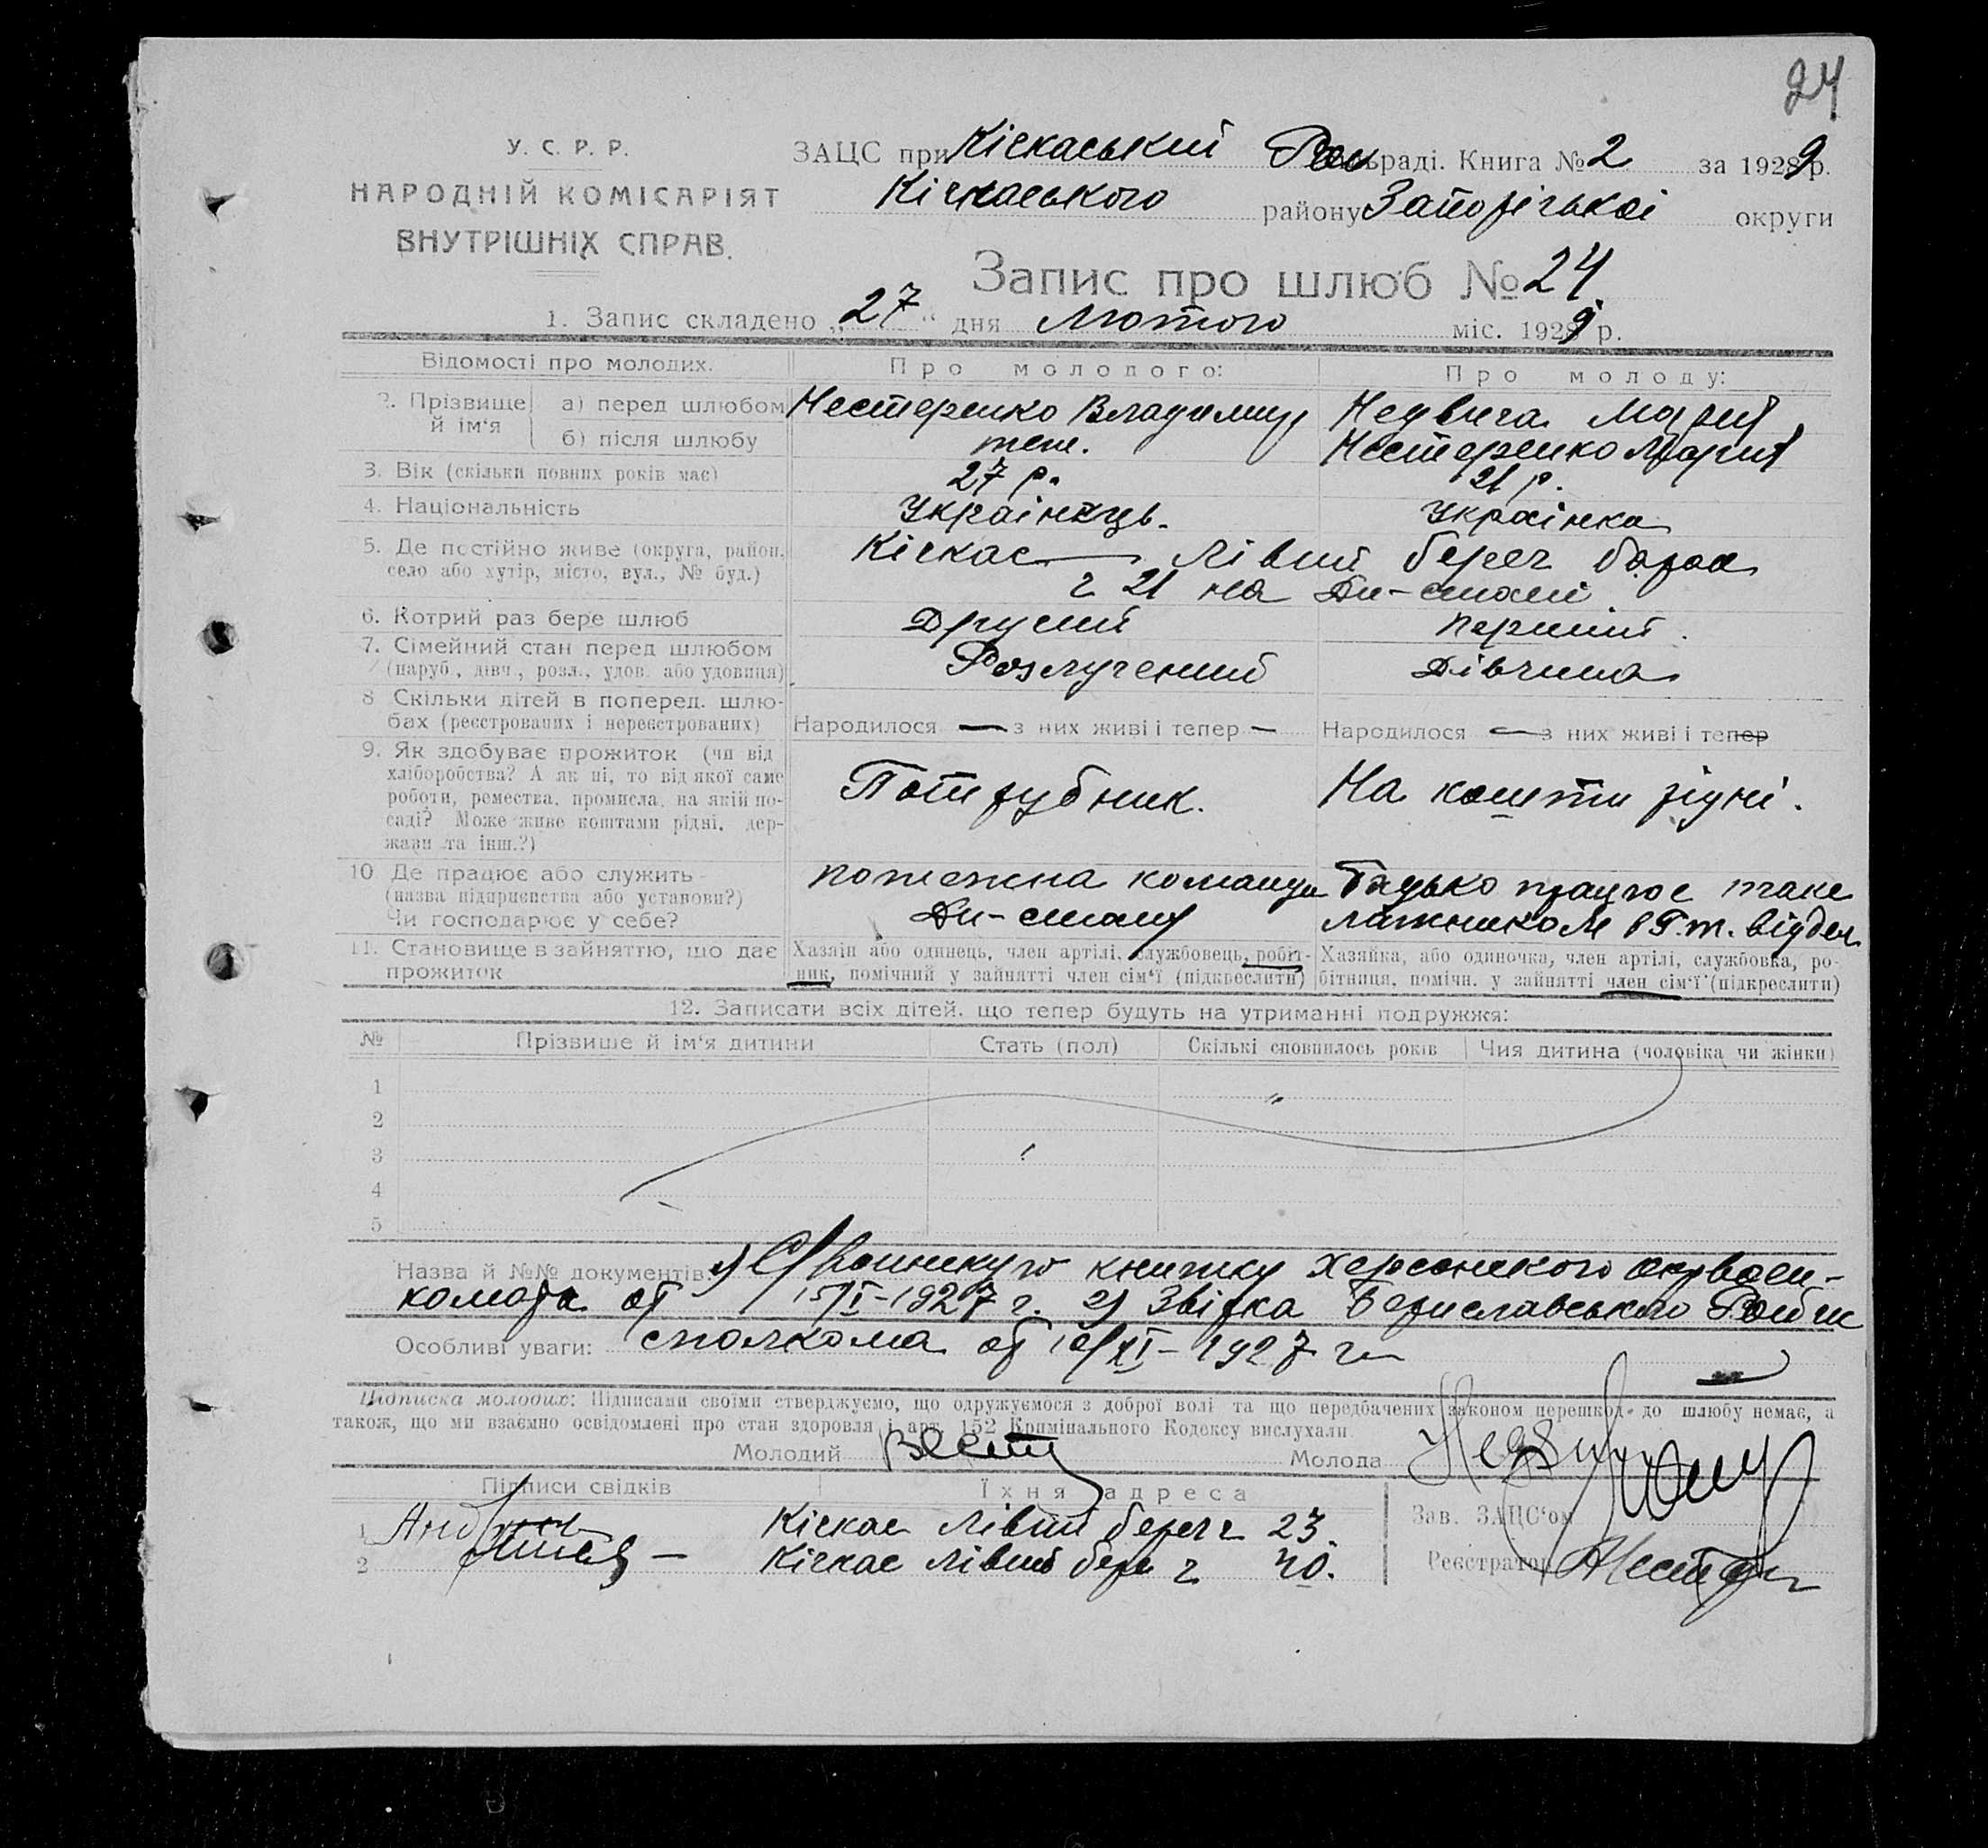 24
У. С. Р. Р.
НАРОДНІЙ КОМІСАРІЯТ
ВНУТРІШНІХ СПРАВ.
ЗАЦС при Кічкаський Рай раді. Книга № 2 за 1929 р.
Кічкаського району Запорізької округи
Запис про шлюб № 24
1. Запис складено „27“ дня Лютого міс. 1929 р.
Відомості про молодих. Про молодого: Про молоду:
2. Прізвище й ім‘я а) перед шлюбом Нестеренко Владимир Недвига Мария
б) після шлюбу теж. Нестеренко Мария
3. Вік (скільки повних років має) 27 р. 21 р.
4. Національність Українець. Українка
5. Де постійно живе (округа, район, Кічкас Лівий берег барак
село або хутір, місто, вул., № буд.) ч 21 на Дн-стані
6. Котрий раз бере шлюб Другий перший.
7. Сімейний стан перед шлюбом Розлучений Дівчина
(паруб., дівч., розл., удов. або удовиця)
8 Скільки дітей в поперед. шлю-
бах (реєстрованих і нереєстрованих) Народилося — з них живі і тепер — Народилося — з них живі і тепер
9. Як здобуває прожиток (чи від
хліборобства? А як ні, то від якої саме
роботи, ремества, промисла, на якій по- На кошти рідні.
саді? Може живе коштами рідні, дер-
жави та інш.?)
10 Де працює або служить пожежна команда Батько працює таке
(назва підприємства або установи?) Дн-стану лажником
Чи господарює у себе?
11. Становище в зайняттю, що дає Хазяїн або одинець, член артілі, службовець, робіт- Хазяйка, або одиночка, член артілі, службовка, ро-
прожиток ник, помічний у зайнятті член сім‘ї (підкреслити) бітниця, помічн. у зайнятті член сім‘ї (підкреслити)
12. Записати всіх дітей, що тепер будуть на утриманні подружжя:
№ Прізвище й ім‘я дитини Стать (пол) Скількі сповнилось років Чия дитина (чоловіка чи жінки)
1
2
3
4
5
Назва й №№ документів: книжку Херсонского окрвоен-
комата от 15/I-1927 г. 2) Звірка Бериславського
Особливі уваги: сполкома от /XI-1927 г
Підписка молодих: Підписами своїми стверджуємо, що одружуємося з доброї волі та що передбачених законом перешкод до шлюбу немає, а
також, що ми взаємно освідомлені про стан здоровля і арт. 152 Кримінального Кодексу вислухали.
Молодий Молода
Підписи свідків Їхня адреса
1 Кічкас Лівий берег ч 23. Зав. ЗАЦС‘ом
2 Кічкас Лівий бере ч 40. Реєстратор